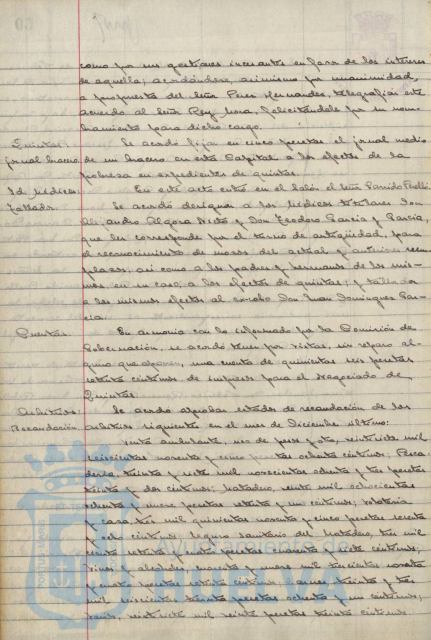 como por sus gestiones incesantes en favor de los intereses
de aquella; acordándose, asimismo por unanimidad,
a propuesta del Señor Perez Hernandez, telegrafiar este
acuerdo al Señor Rey Mora, felicitándole por su nom-
bramiento para dicho cargo.
Quintas: Se acordó fijar en cinco pesetas el jornal medio
jornal bracero. de un bracero en esta Capital a los efectos de la
pobreza en expedientes de quintas.
Id. Médicos En este acto entra en el Salón el Señor Garrido
Tallador. Se acordó designar a los Médicos titulares Don
Alejandro Algora Nieto y Don Teodoro Garcia y Garcia,
que les corresponde por el turno de antigüedad, para
el reconocimiento de mozos del actual y anteriores reem-
plazos; así como a los padres y hermanos de los mis-
mos en su caso, a los efectos de quintas; y tallador
a los mismos efectos al Don Juan Dominguez Gar-
cia.
Cuentas. En armonia con lo informado por la Comisión de
Gobernación, se acordó tener por vistas, sin reparo al-
guno que oponer, una cuenta de quinientas seis pesetas
setenta céntimos de impresos para el Negociado de
Quintas.
Arbitrios: Se acordó aprobar estados de recaudación de los
Recaudación. arbitrios siguientes en el mes de Diciembre último:
Venta ambulante, uso de pesas y otros, veintisiete mil
seiscientas noventa y cinco pesetas ochenta céntimos; Pesca-
deria, treinta y siete mil novecientas ochenta y tres pesetas
treinta y dos céntimos; Matadero, veinte mil ochocientas
ochenta y nueve pesetas setenta y un céntimos;
y casa tres mil quinientas noventa y cinco pesetas sesenta
y ocho céntimos; sanitario del Matadero, tres mil
ciento setenta y cuatro pesetas cuarenta y siete céntimos;
vinos y alcoholes, cuarenta y nueve mil trescientas noventa
y cuatro pesetas setenta céntimos; carnes, treinta y tres
mil seiscientas treinta pesetas ochenta y un céntimos;
veintisiete mil veinte pesetas treinta céntimos.